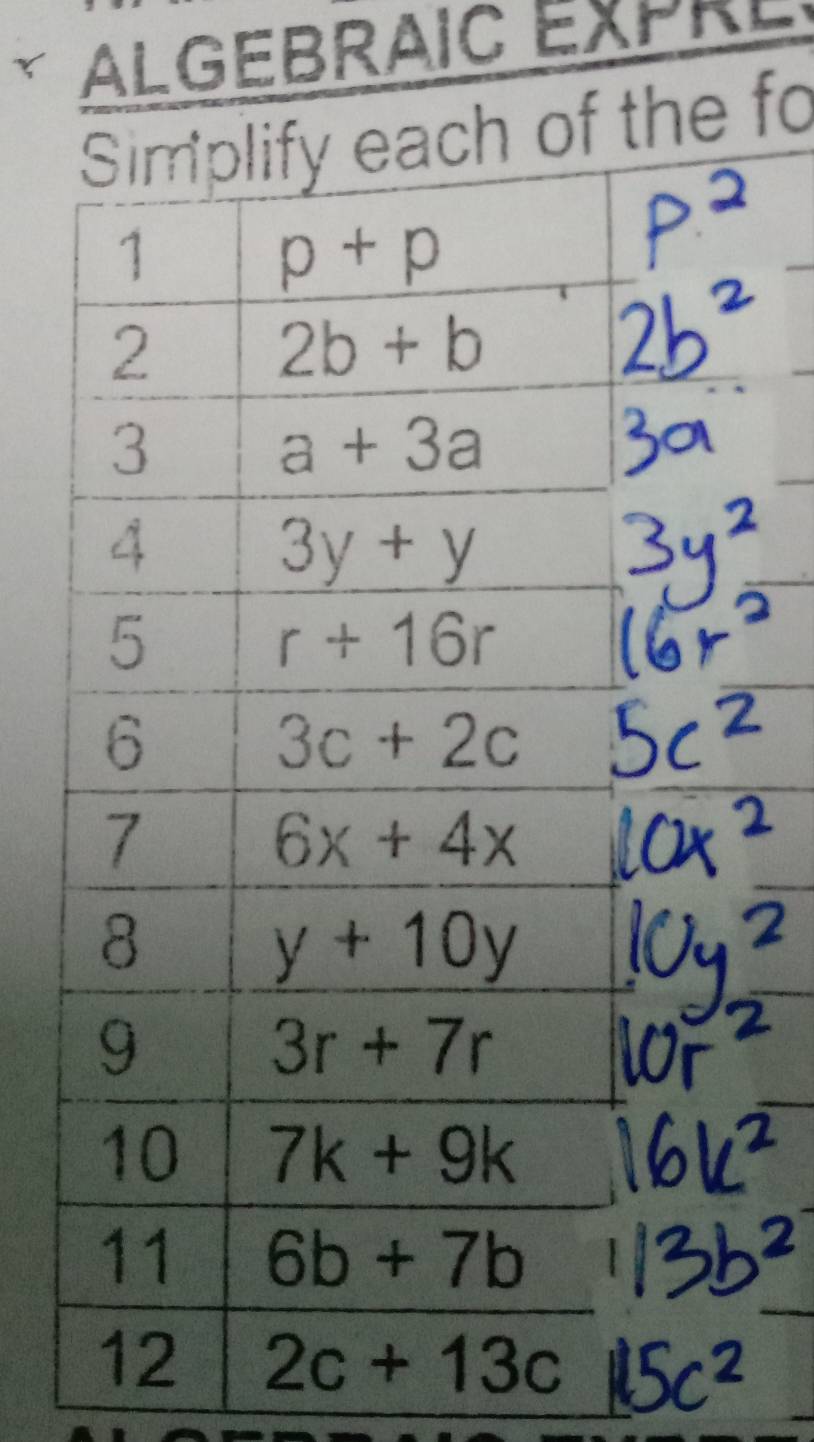 ALGEBRAIC EXPRE
Simplify each of the fo
1 p + p p²
2 2b + b 2b²
3 a + 3a 3a
4 3y + y 3y²
5 r + 16r 16r²
6 3c + 2c 5c²
7 6x + 4x 10x²
8 y + 10y 10y²
9 3r + 7r 10r²
10 7k + 9k 16k²
11 6b + 7b 13b²
12 2c + 13c 15c²